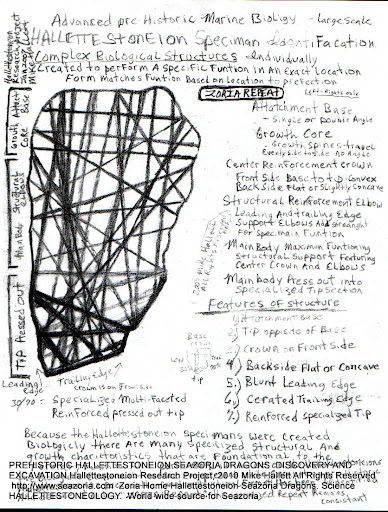 Advanced pre Historic Marine Bioligy - large Scale
HALLETTESTONEION Speciman Identifacation
Complex Biological Structures - Individually
Created to perform A specific Funtion in An Exact Location
Form matches Funtion Based on Location to prefection
ZORIA REPEAT
Left-Right only
Attatchment Base
- Single or Double Angle
Growth Core
- Growth Spines travel
Evenly Side to Side No Angle
Center Reinforcement Crown
Front Side Base to tip-Convex
Back Side Flat or Slightly Concave
Structural Reinforcement Elbow
Leading And trailing Edge
Support Elbows Add strenght
For Speciman Funtion
Main Body Maximum Funtioning
Structural Support Featuring
Center Crown And Elbows
Main body Press out into
Specialized Tip Section
Features of Structure
1) Attatchment Base
2) Tip oppisite of Base
3) Crown on Front Side
4) Backside Flat or Concave
5) Blunt Leading Edge
6) Cerated Trailing Edge
7) Reinforced specialized Tip
Hallettestoneion
Research Project
Attatchment
Base
Growth
Core
Structural
Elbows
Main Body
Tip Pressed out
Leading
Edge
Trailing Edge
Crown is on Front side
Base
Tip
30/90 : Specialized Multi-Faceted
Reinforced pressed out tip
Because the Hallettestoneion Specimans were Created
Biologicly there are Many Specilized Structural And
growth charictoristics that are Foundational to the
PREHISTORIC HALLETTESTONEION SEAZORIA DRAGONS : DISCOVERY AND
EXCAVATION Hallettestoneion Research Project: 2010 Mike Hallett All Rights Reserved
http://www.seazoria.com Zoria Home Hallettestoneion Seazoria Dragons, Science
HALLETTESTONEOLOGY. World wide source for Seazoria
Repeat Remains,
consistant